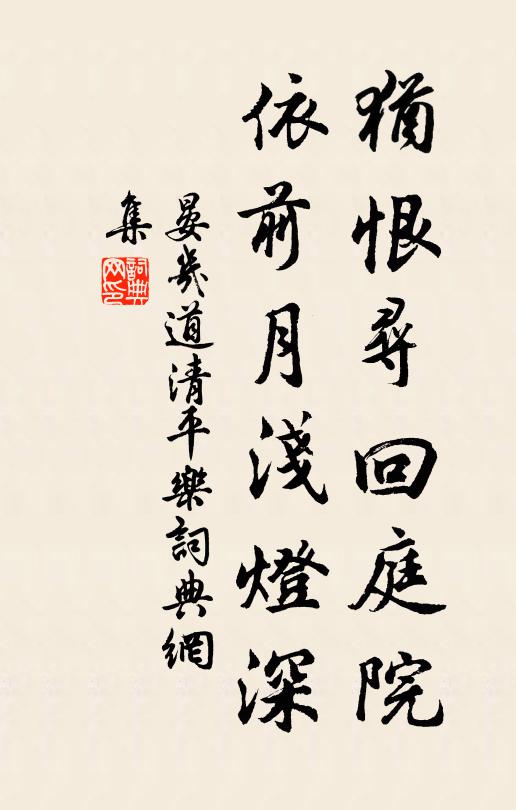 猶恨尋回庭院
依前月淺燈深
晏幾道清平樂詞典網
集
詞典
网印